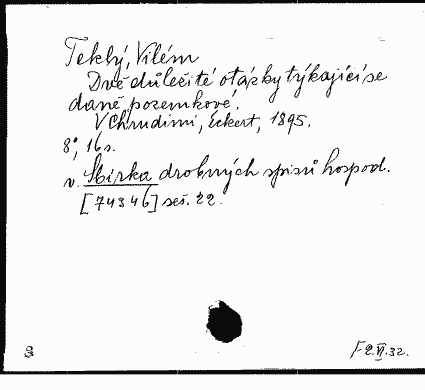 Teklý, Vilém
Dvě důležité otázky týkající se
daně pozemkové.
V Chrudimi, Eckert, 1895.
8°, 16 s.
v. Sbírka drobných spisů hospod.
[74346] seš. 22.
F 2.VI.32.